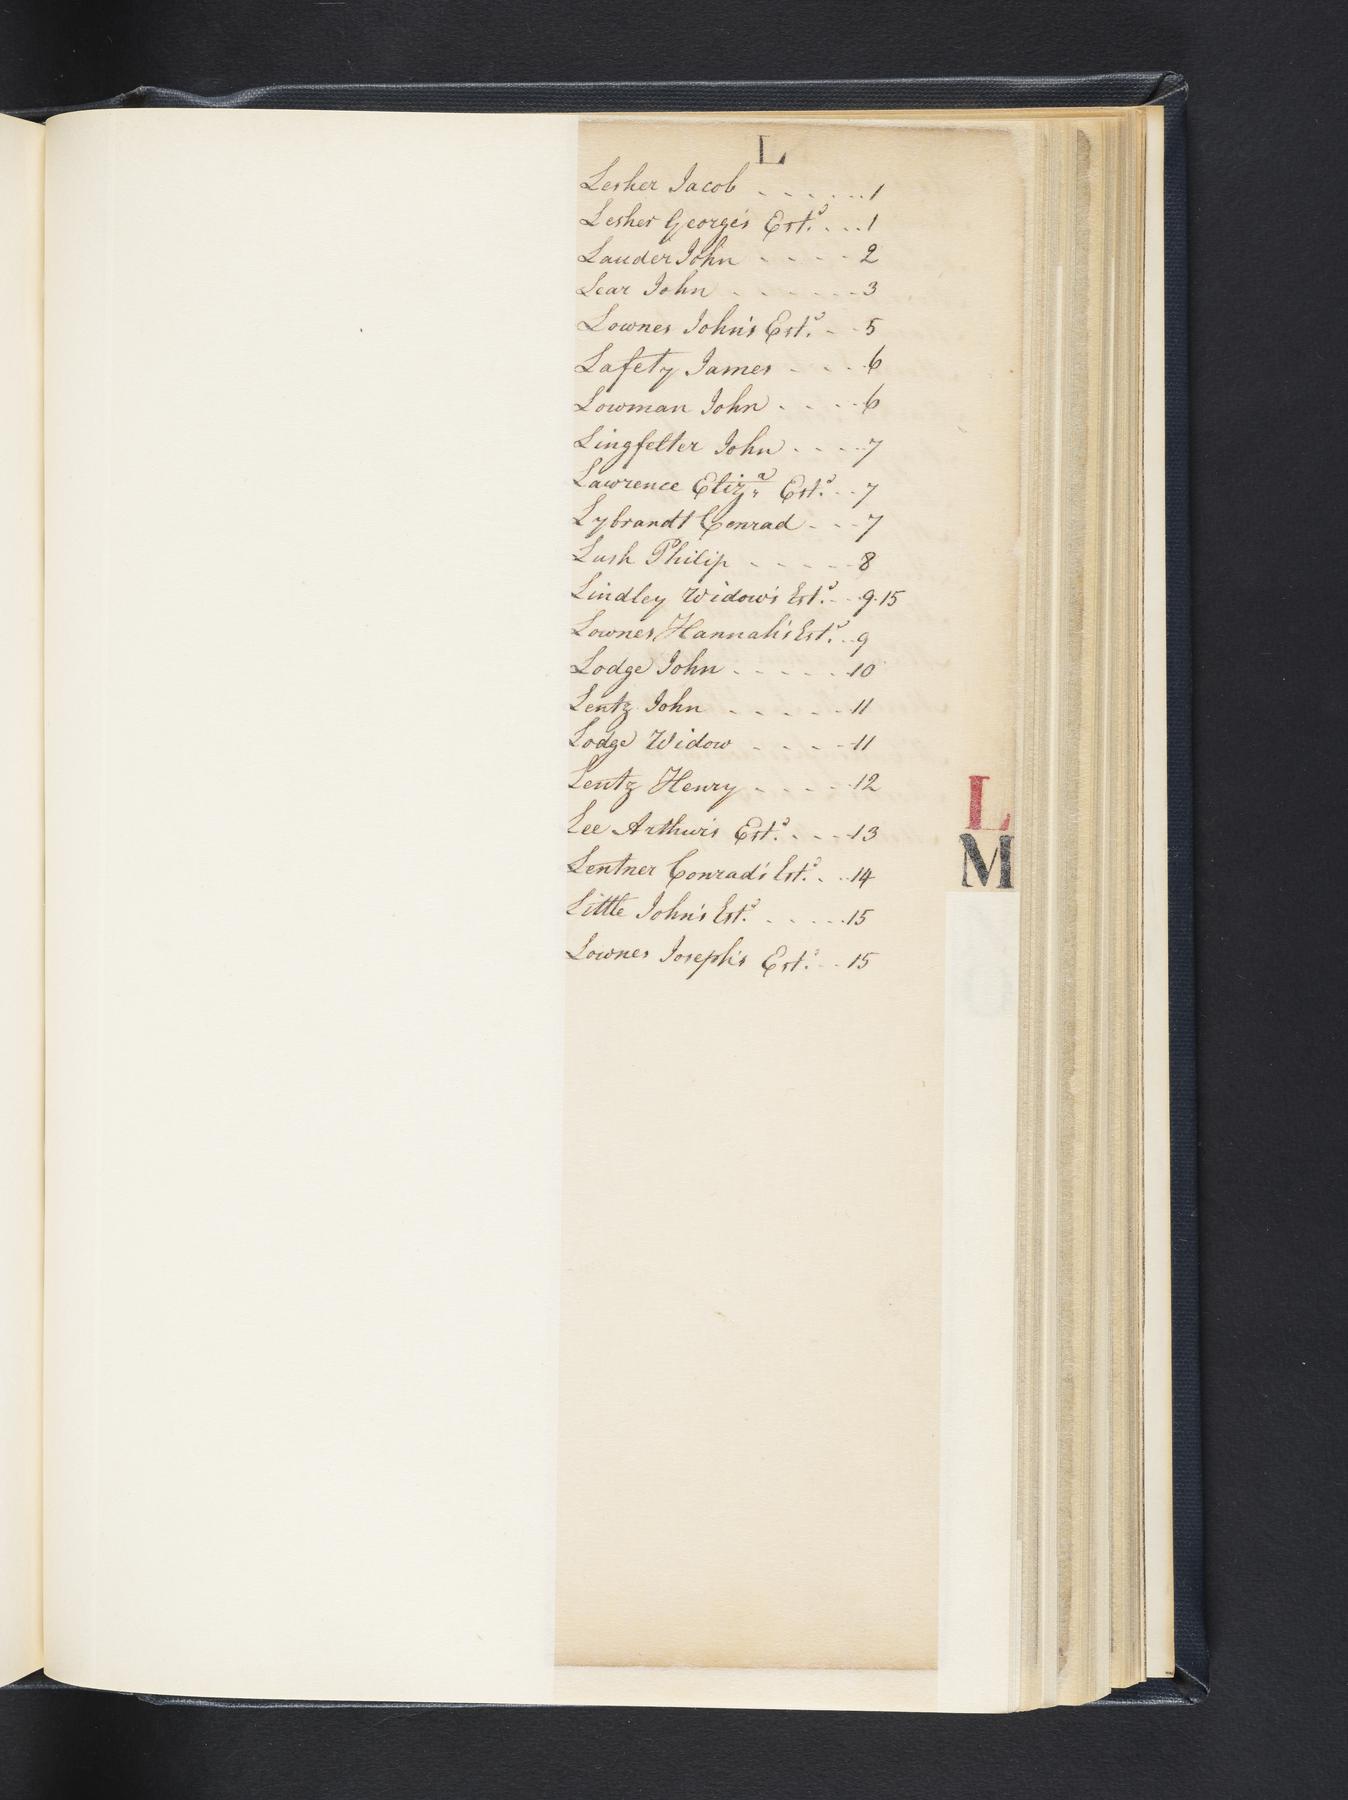 L
Lesher Jacob - - - - - - 1
Lesher George's Est.ᵈ - - - 1
Lauder John - - - - 2
Lear John - - - - - - 3
Lownes John's Est.ᵈ - - 5
Lafety James - - - - 6
Lowman John - - - - - 6
Lingfelter John - - - - 7
Lawrence Eliz.ᵃ Est.ᵈ - - 7
Lybrandt Conrad - - - 7
Lush Philip - - - - - 8
Lindley Widow's Est.ᵈ - - 9.15
Lownes Hannah's Est.ᵈ - - 9
Lodge John - - - - - - 10
Lentz John - - - - - 11
Lodge Widow - - - - 11
Lentz Henry - - - - 12
Lee Arthur's Est.ᵈ - - - 13
Lentner Conrad's Est.ᵈ - - - 14
Little John's Est.ᵈ - - - - - 15
Lownes Joseph's Est.ᵈ - - 15
L
M